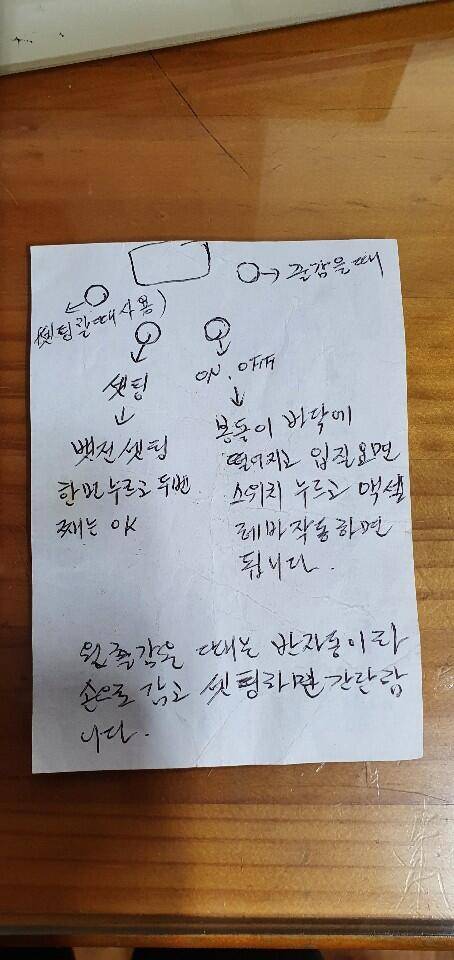 줄감을때
(셋팅할때사용)
셋팅
ON. OFF
뱃전셋팅
한번누르고 두번
째는 OK
봉돌이 바닥에
떨어지고 입질오면
스위치 누르고 액셀
레바작동하면
됩니다.
원줄감을 때는 반자동이라
손으로 감고 셋팅하면 간단함
니다.